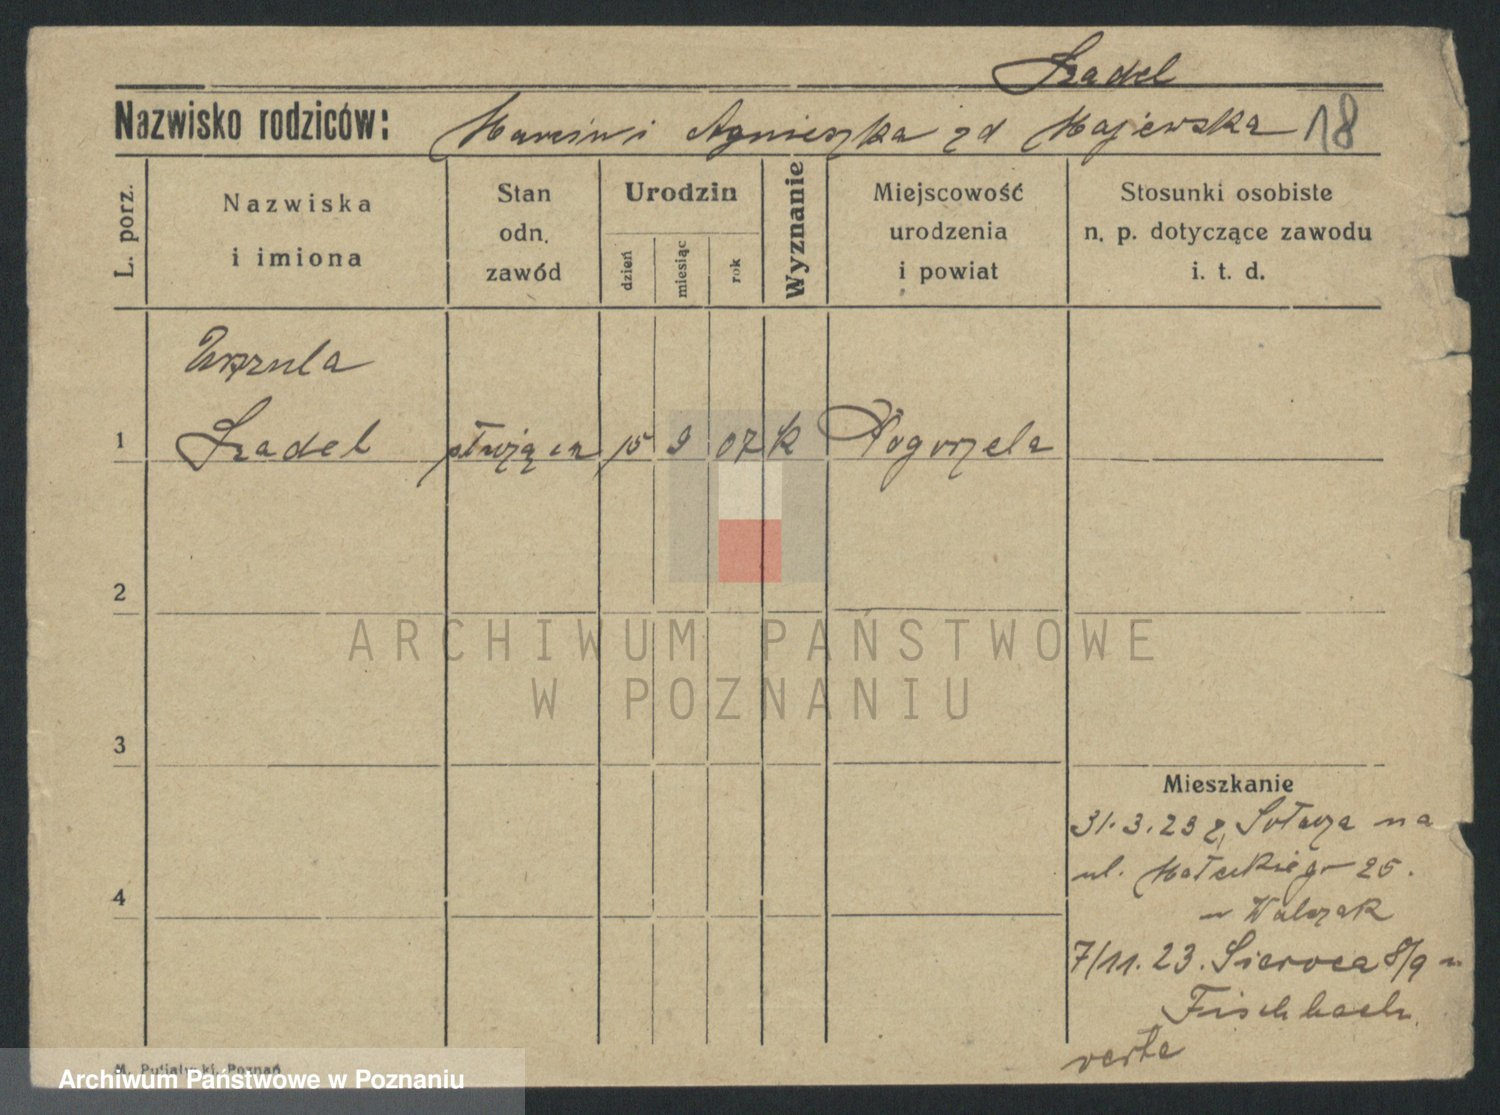 Szadel
Nazwisko rodziców: Marcin i Agnieszka zd Majewska 18
L. porz.
Nazwiska
i imiona
Stan
odn.
zawód
Urodzin
dzień
miesiąc
rok
Wyznanie
Miejscowość
urodzenia
i powiat
Stosunki osobiste
n. p. dotyczące zawodu
i. t. d.
Urszula
1 Szadel służąca 15 9 07 k Pogorzela
2
ARCHIWUM PAŃSTWOWE
W POZNANIU
3
Mieszkanie
31.3.23 z Sołacza na
ul. Małeckiego 25.
4
u Walczak
7/11.23. Sieroca 8/9 u
Fischbach
verte
Poznań
Archiwum Państwowe w Poznaniu